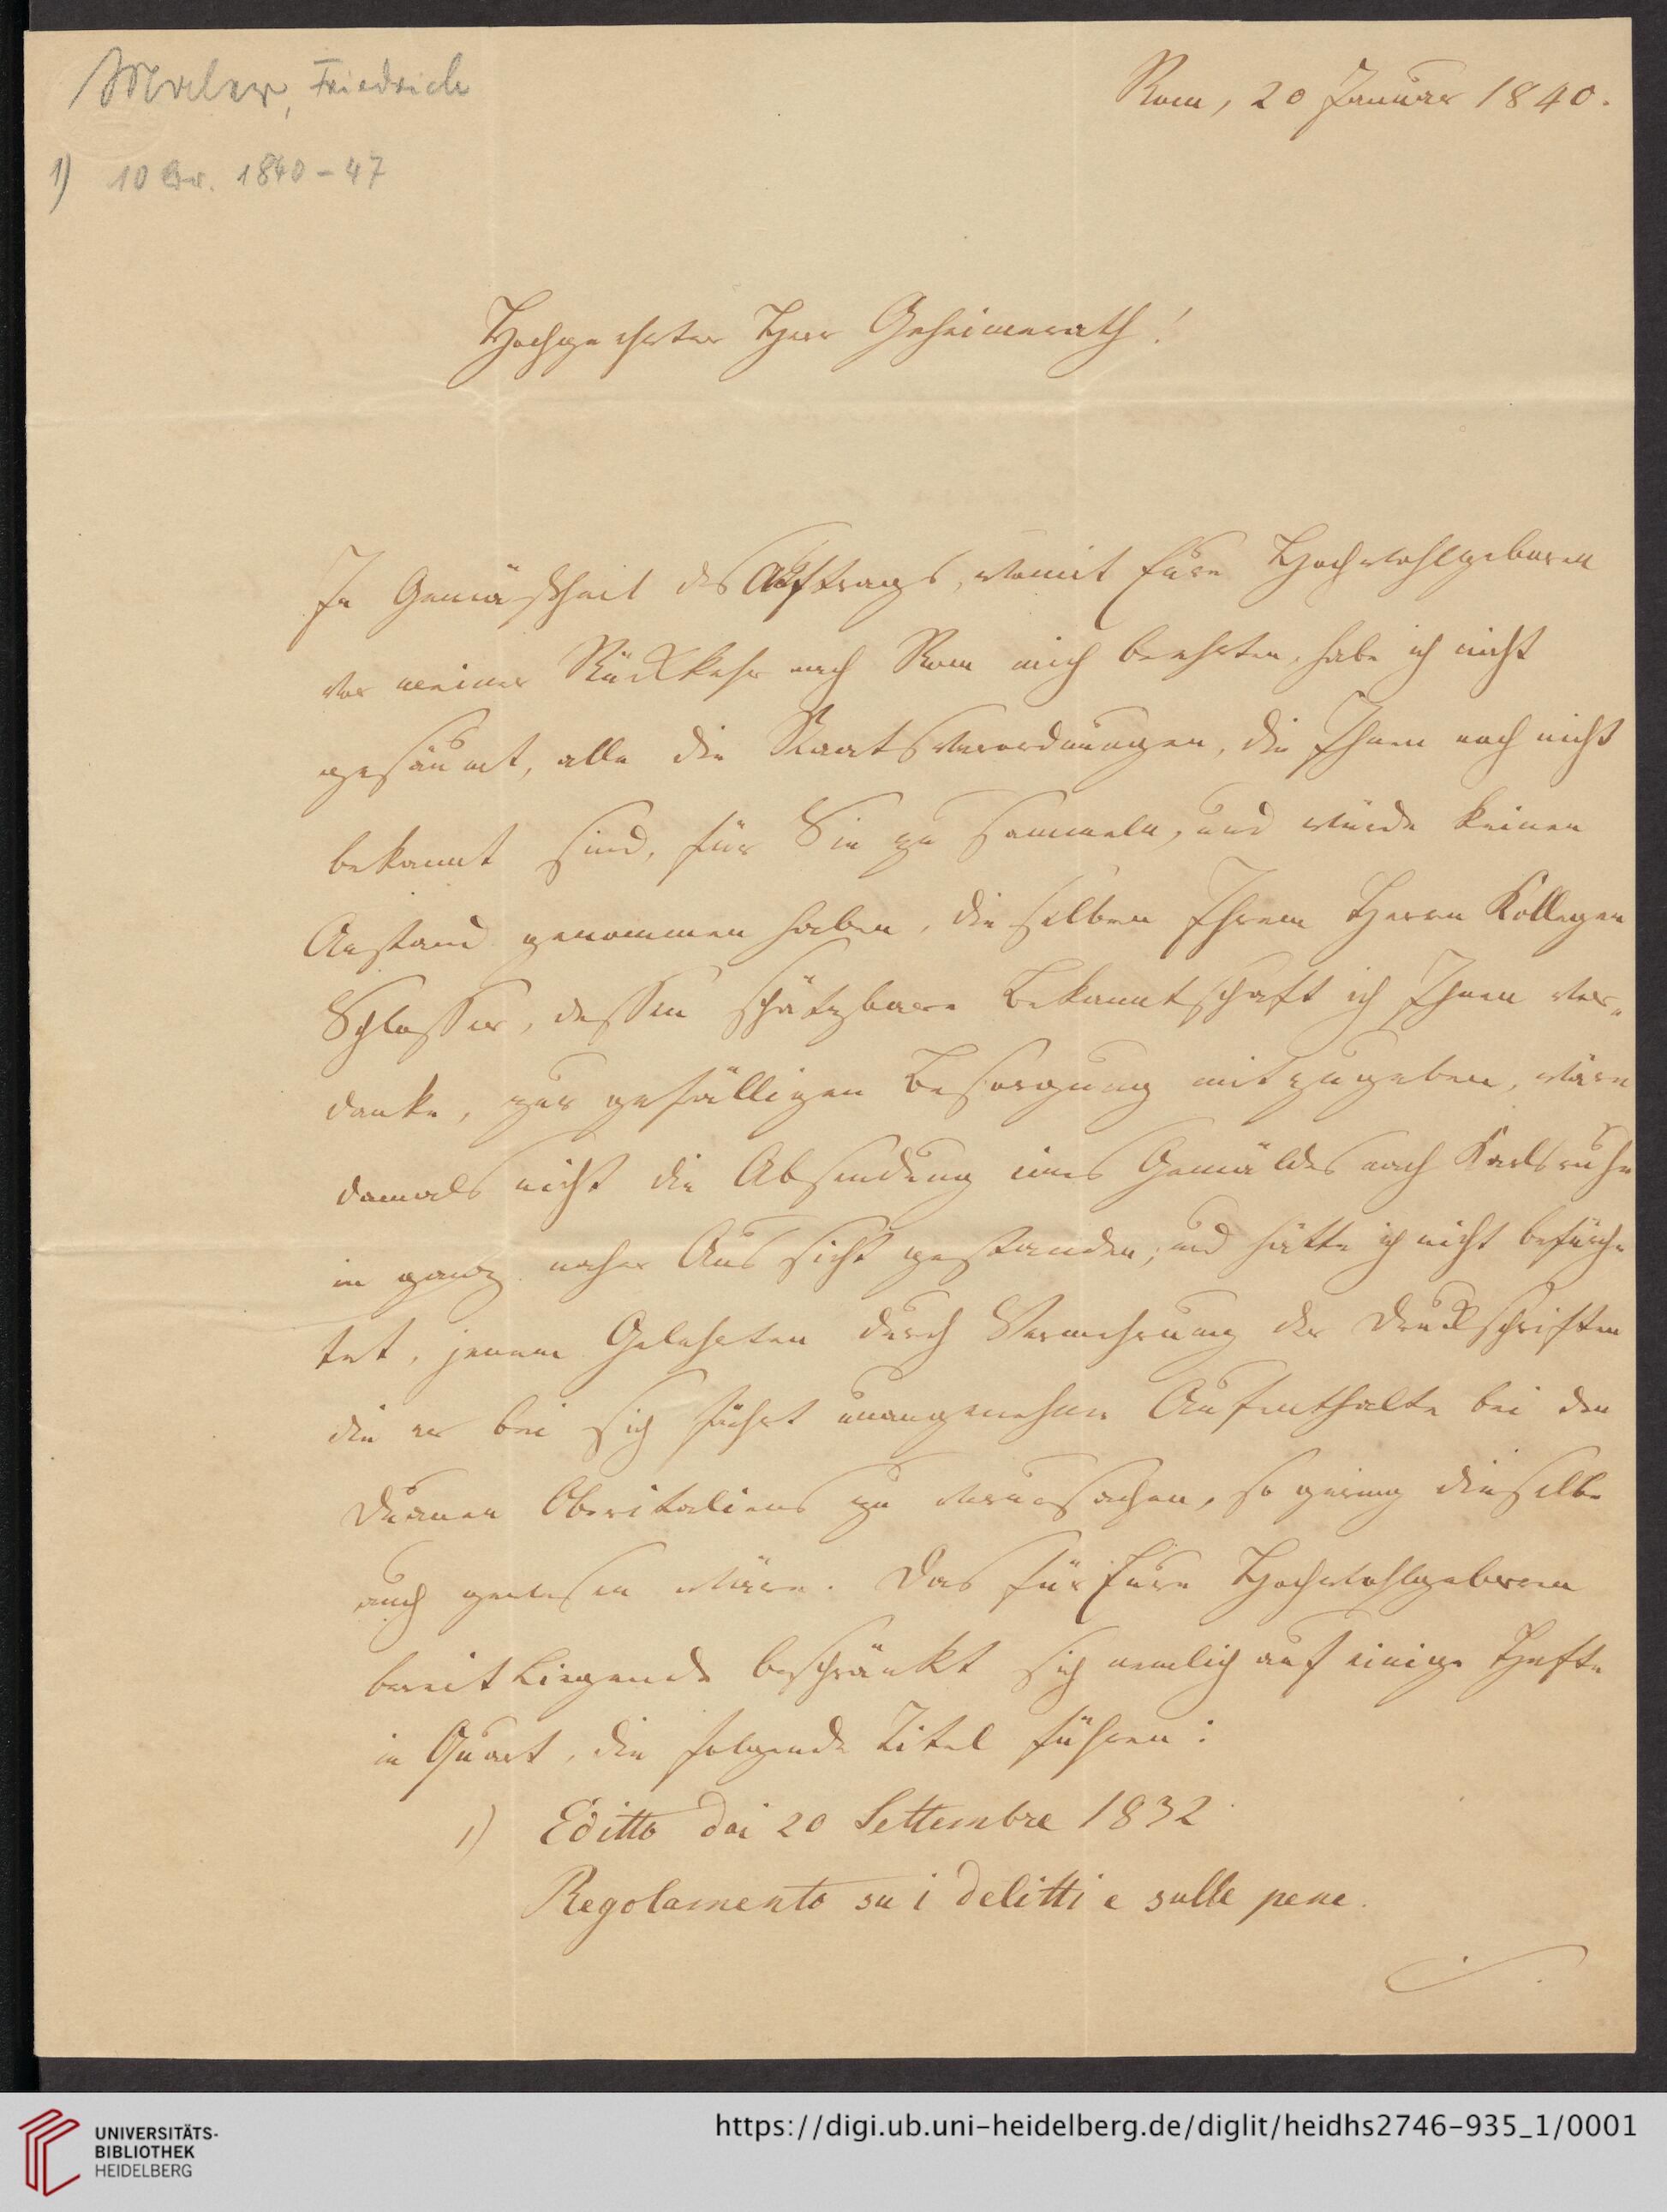 Maler, Friedrich
1) 10 Br. 1840-47
Rom, 20 Januar 1840.
Hochgeehrter Herr Geheimerath!
In Gemäßheit des Auftrags, womit Eure Hochwohlgeboren
vor meiner Rückkehr nach Rom mich beehrten, habe ich nicht
gesäumt, alle die Staatsverordnungen, die Ihnen noch nicht
bekannt sind, für Sie zu sammeln, und würde keinen
Anstand genommen haben, dieselben Ihrem Herrn Kollegen
Schlosser, dessen schätzbare Bekanntschaft ich Ihnen ver-
danke, zur gefälligen Besorgung mitzugeben, wäre
damals nicht die Absendung eines Gemäldes nach Karlsruhe
in ganz naher Aussicht gestanden, und hätte ich nicht befürch-
tet, jenem Gelehrten durch Vermehrung der Druckschriften
die er bei sich führt unangenehme Aufenthalte bei den
Duanen Oberitaliens zu verursachen, so gering dieselbe
auch gewesen wäre. Das für Eure Hochwohlgeboren
bereit Liegende beschränkt sich nemlich auf einige Hefte
in Quart, die folgende Titel führen:
1) Editto dei 20 Settembre 1832
Regolamento su i delitti e sulle pene.
UNIVERSITÄTS-
BIBLIOTHEK
HEIDELBERG
https://digi.ub.uni-heidelberg.de/diglit/heidhs2746-935_1/0001